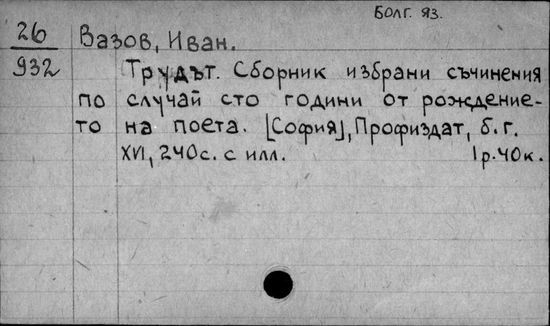 Болг. яз.
26 Вазов, Иван.
932 Трудът. Сборник избрани съчинения
по случай сто години от рождение-
то на поета. [София], Профиздат, б.г.
XVI, 240с. с илл. 1р.40к.